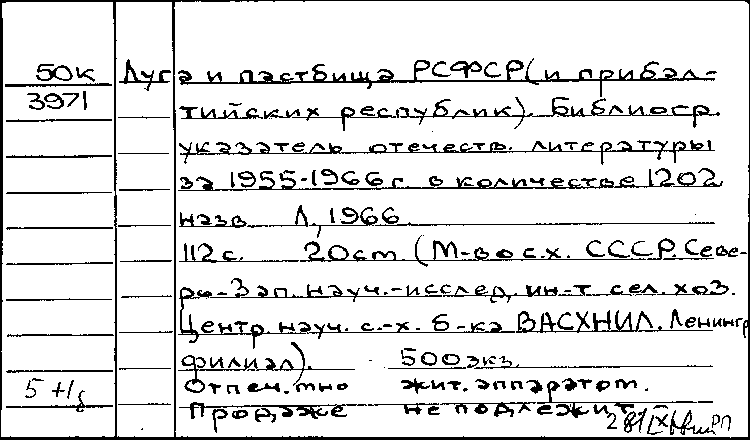 50к Луга и пастбища РСФСР (и прибал-
3971 тийских республик). Библиогр.
указатель отечеств. литературы
за 1955-1966 г. в количестве 1202
назв. Л., 1966.
112 с. 20 см. (М-во с.х. СССР. Севе-
ро-Зап. науч.-исслед. ин-т сел. хоз.
Центр. науч. с.-х. б-ка ВАСХНИЛ. Ленингр.
филиал). 500 экз.
Отпеч. мно жит. аппаратом.
Продаже не подлежит.